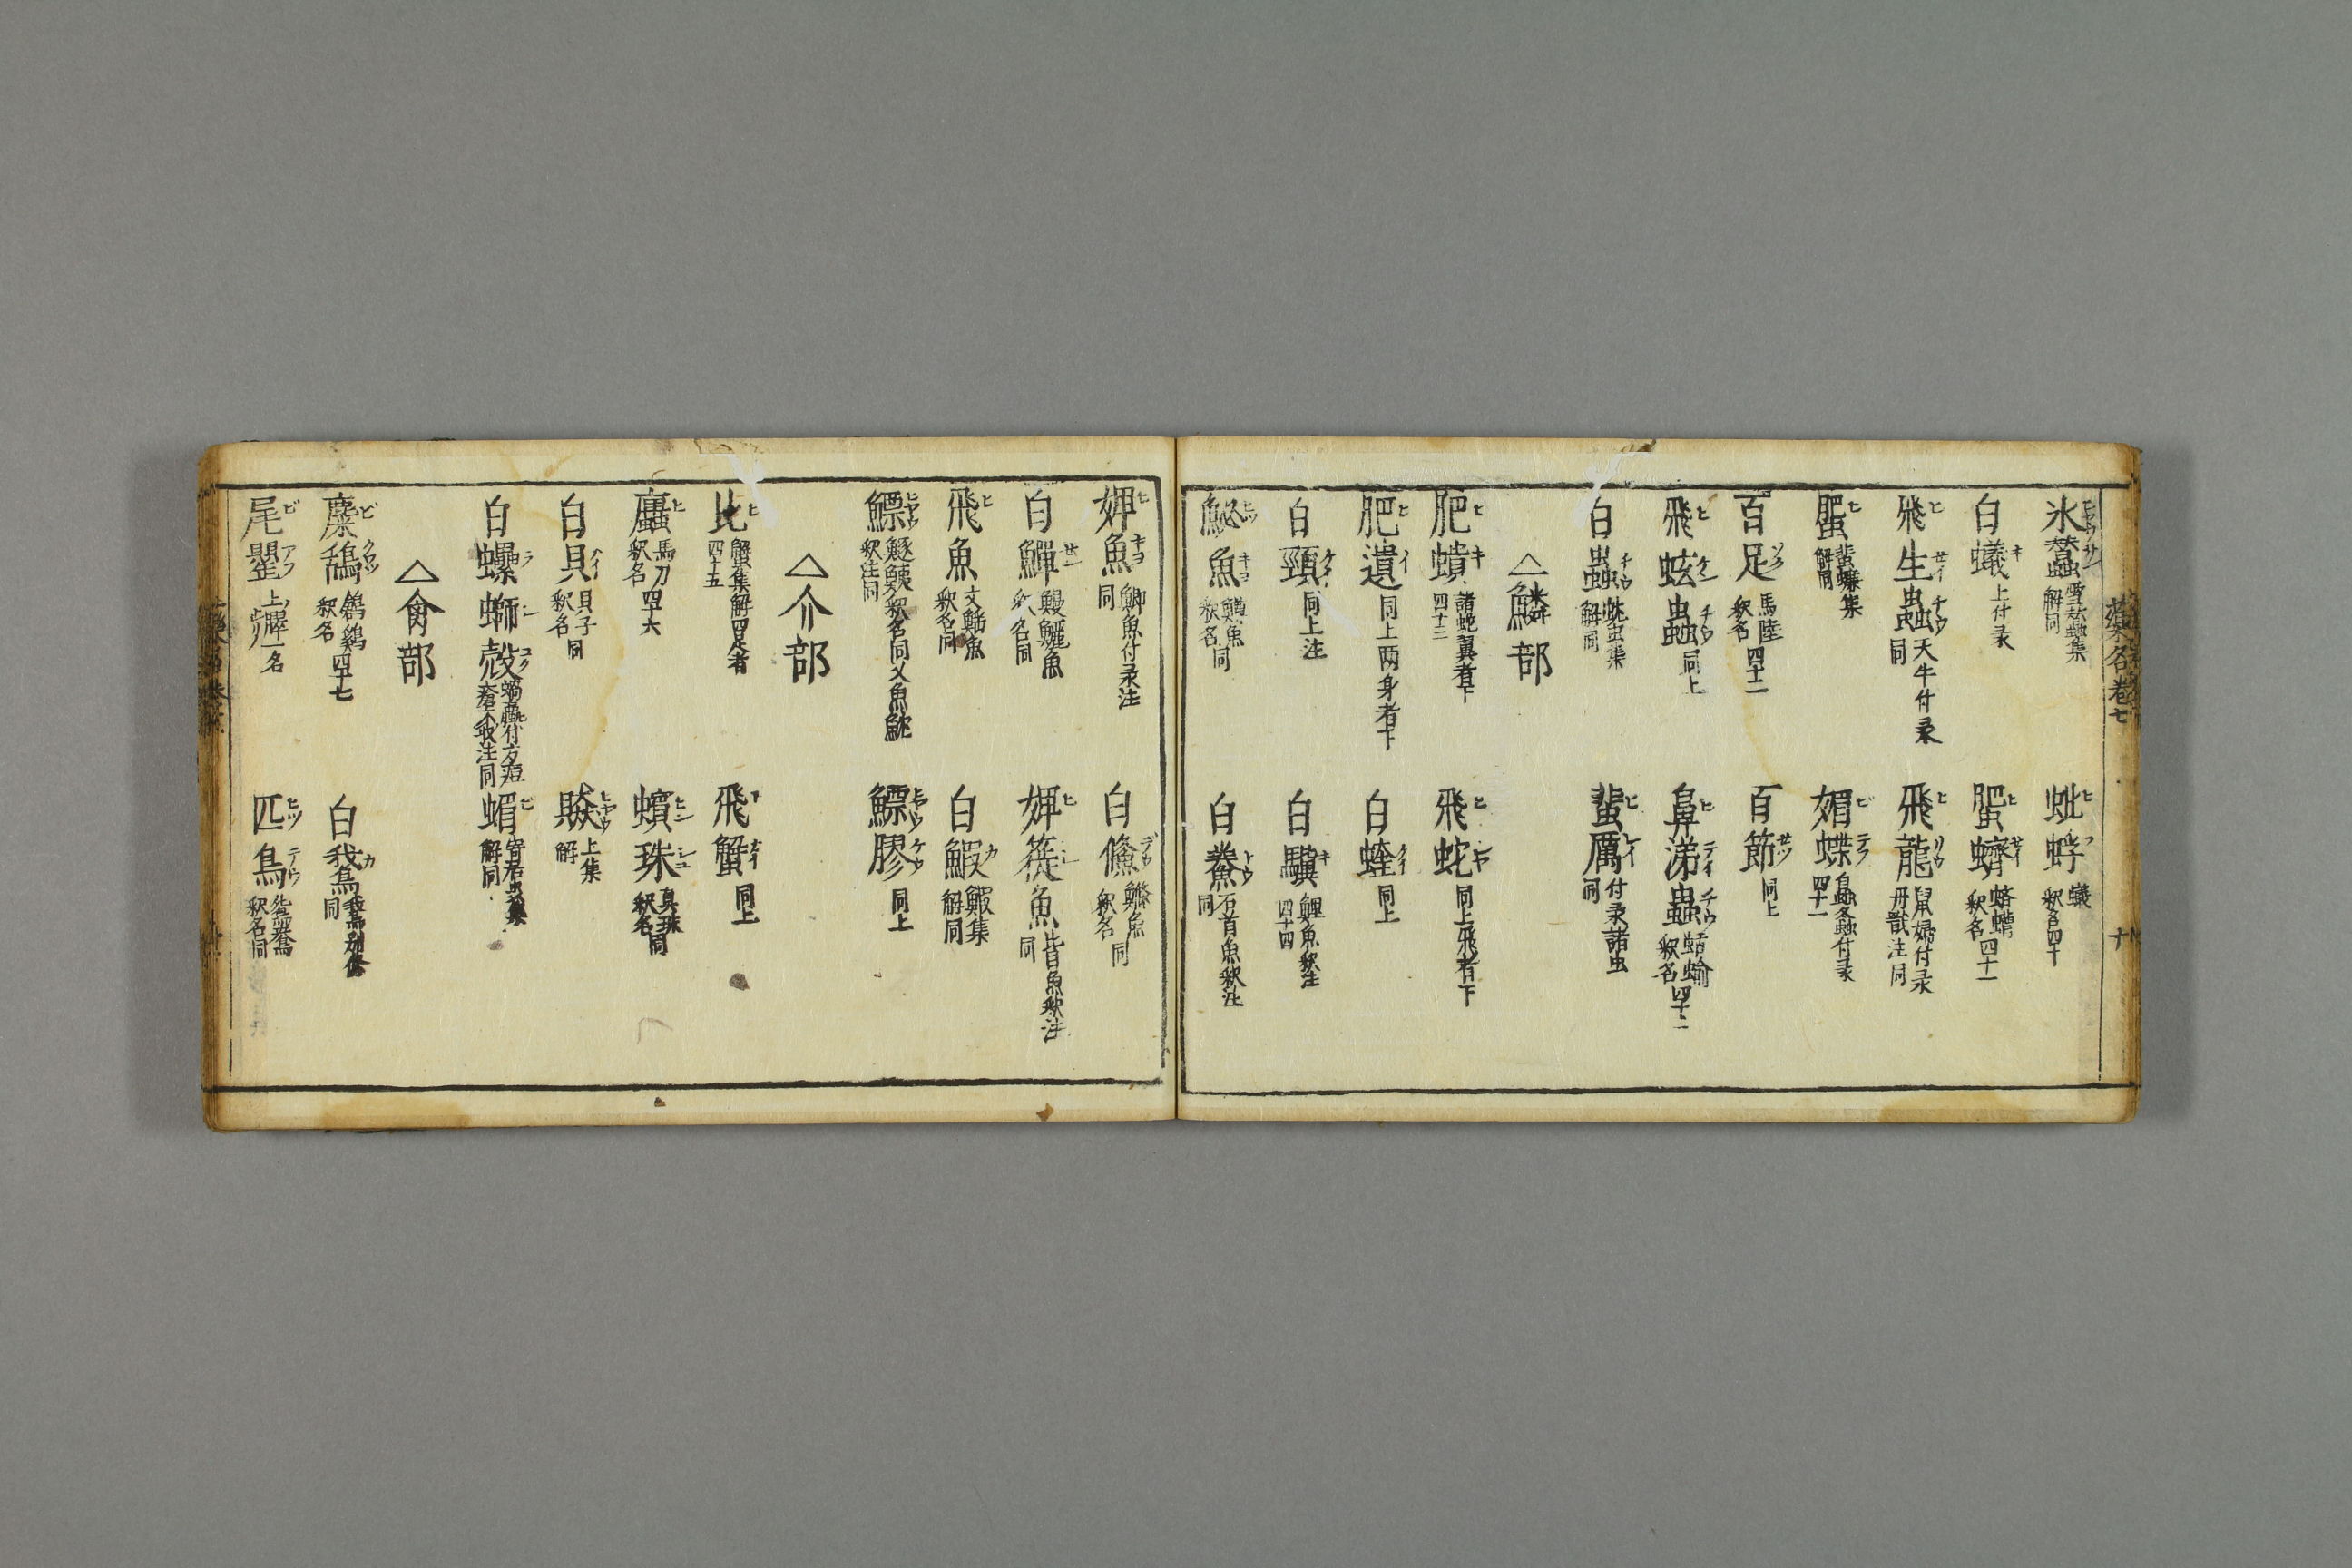 藥名卷七 十
氷蚕 雪蚕集解同
蚍蜉 蟻釈名四十
白蟻 上付录
蜰蠐 蛴螬釈名四十一
飛生蟲 天牛付录同
飛龍 鼠婦付录丹戬注同
蜰 蜚蠊集解同
媚蝶 四十一
百足 馬陸釈名四十二
百節 同上
飛蚿蟲 同上
鼻涕蟲 蛞蝓釈名四十二
白蟲 蚘虫集解同
蜚厲 付录諸虫同
△鱗部
肥蟦 諸蛇翼者下四十三
飛蛇 同上飛者下
肥遺 同上两身者下
白蝰 同上
白頸 同上注
白驥 鯉魚釈注四十四
鮅魚 鱒魚釈名同
白鮝 石首魚釈注同
婢魚 鯽魚付录注同
白鰷 鰷魚釈名同
白鱓 鰻鱺魚釈名同
婢簁魚 皆魚釈注同
飛魚 文鰩魚釈名同
白鰕 鰕集解同
鰾 鱁鮧釈名同又魚鮀釈注同
鰾膠 同上
△介部
比 蟹集解四足者四十五
飛蟹 同上
蠯 馬刀釈名四十六
蠙珠 真珠釈名同
白貝 貝子釈名同
上集解
白螺螄殻
蝞 寄居虫集解同
△禽部
麋鴰 鶬鷄釈名四十七
白䳘 䳘別條同
尾瞿 上一名
匹鳥 鴛鴦釈名同